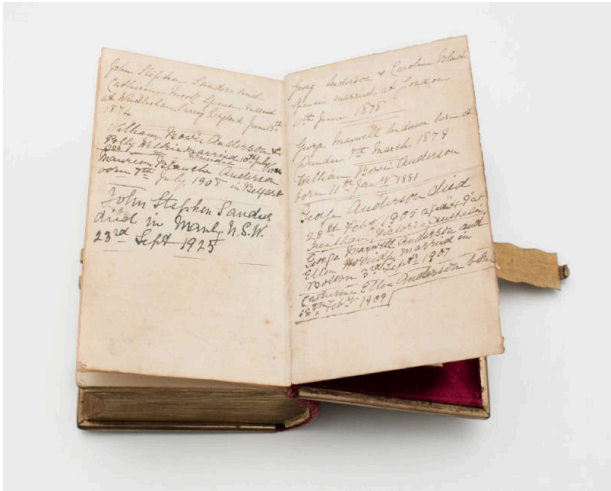 John Stephen Sanders and
Catherine Nicoll Spence married
at Windlesham Surrey England June 15th
1874
William Bowie Anderson &
Polly Wilkie married 10th
Maurien Blanche Anderson
born 7th July 1908 in Belfast
John Stephen Sanders
died in Manly N.S.W.
23rd Sept 1925
George Anderson & Caroline
Spence married at London
11th June 1878
George Maxwell Anderson born at
Dundee 7th March 1879
William Bowie Anderson
born 11th Jan 1881
George Anderson died
28th Feby 1907 aged
Victoria Australia
George Maxwell Anderson and
Ellen married in
Bolton 3rd Sept 1907
Catherine Ellen Anderson born
18th Feby 1909